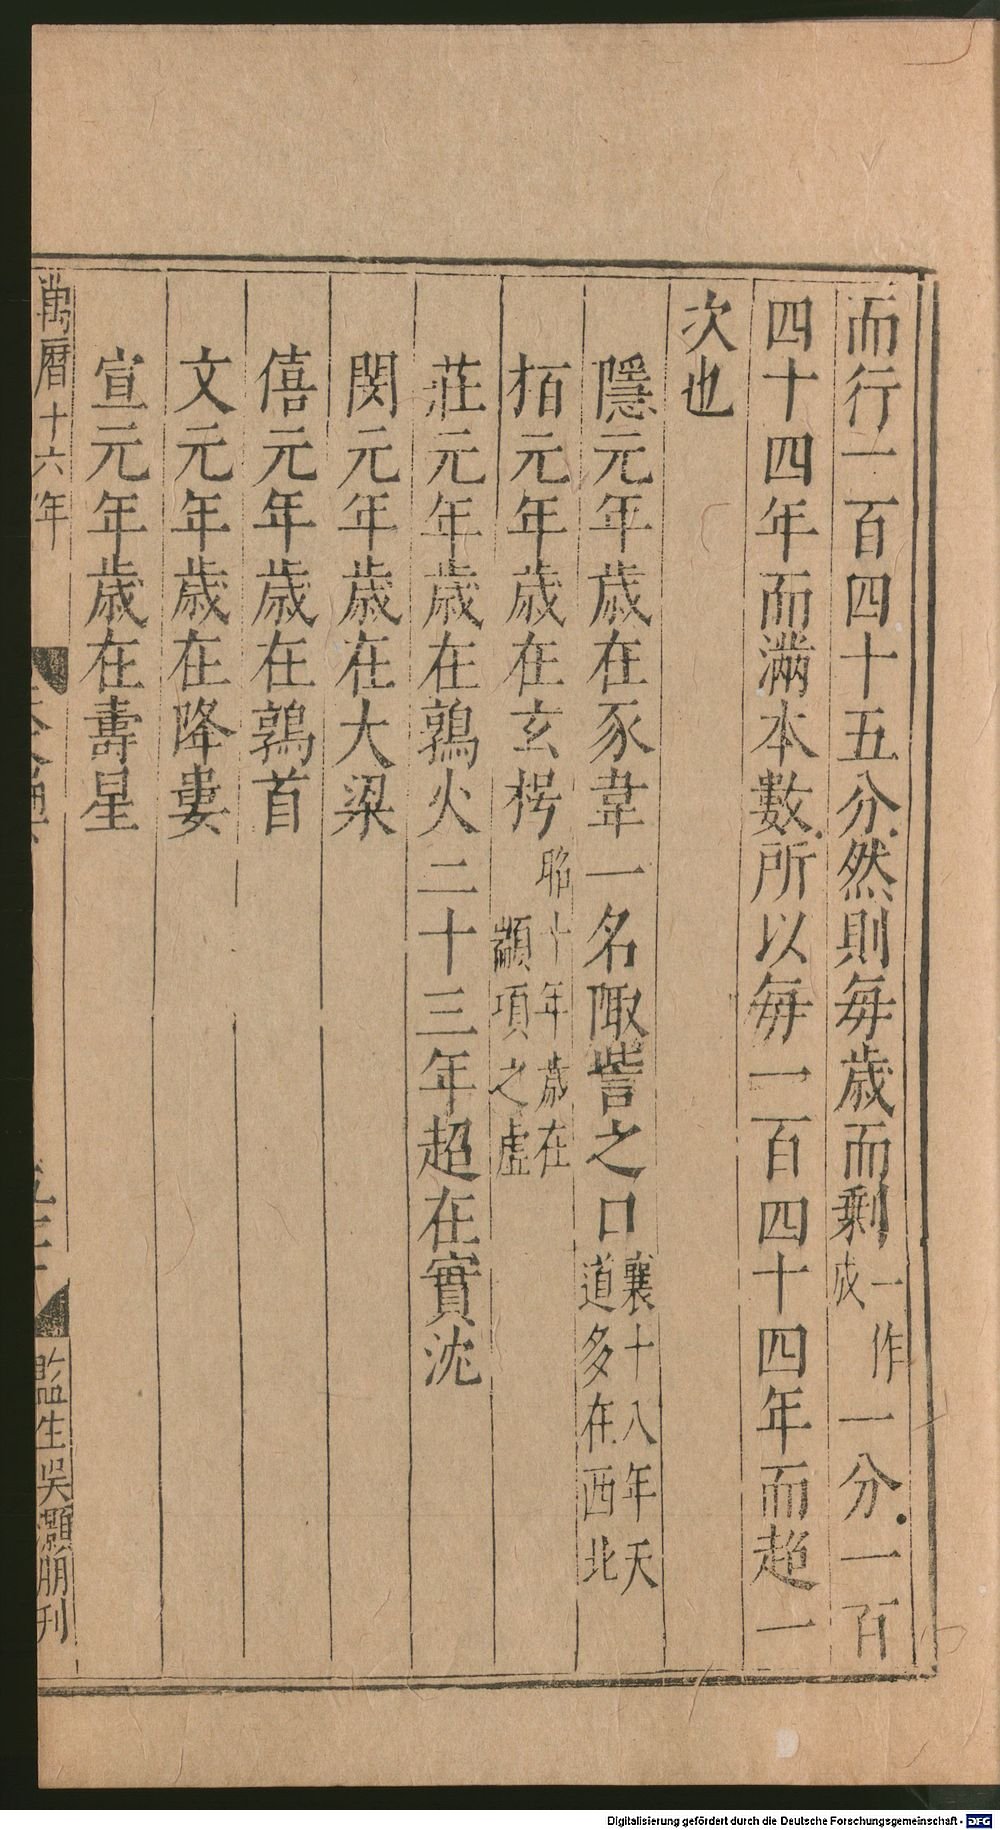 而行一百四十五分然則每歲而剩一作成一分一百
四十四年而滿本數所以每一百四十四年而超一
次也
隱元年歲在豕韋一名陬訾之口襄十八年天道多在西北
栢元年歲在玄枵昭十年歲在顓頊之虛
莊元年歲在鶉火二十三年超在實沈
閔元年歲在大梁
僖元年歲在鶉首
文元年歲在降婁
宣元年歲在壽星
萬曆十六年
監生吳灝朋刊
Digitalisierung gefördert durch die Deutsche Forschungsgemeinschaft - DFG